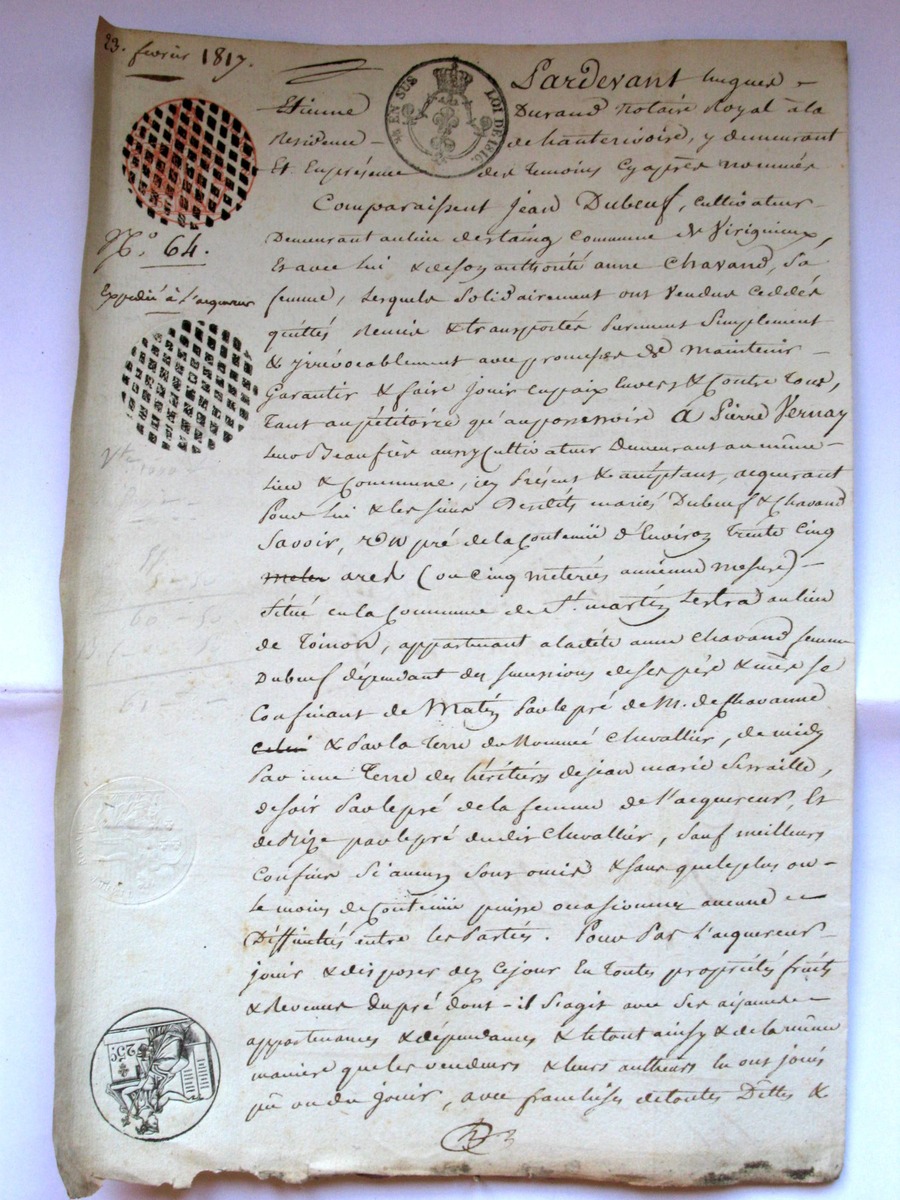 23. fevrier 1817.
EN SUS LOI DE 1816.
Pardevant hugues
Etienne Durand Notaire Royal à la
Residence de hauterivoire, y demeurant
Et En présence des temoins Cy après nommés
Comparaissent Jean Dubeuf, cultivateur
Demeurant au lieu destaing Commune de Virignieux,
N.º 64.
Et avec lui & de son authorité anne Chavand, Sa
Expedié à L'acquereur
femme, Lesquels Solidairement ont Vendus Ceddés
quittés Remis & transportés Purement Simplement
& yrrévocablement avec promesse de Maintenir
Garantir & faire Jouir en paix Envers & Contre Tous,
Tant au pétitoire qu'au possessoire A Pierre Vernay
Leur Beaufrère aussy Cultivateur Demeurant au même
Lieu & Commune, icy Présent & acceptant, acquerant
Pour Lui & les siens Desdits mariés Dubeuf & Chavand
Savoir, un pré de la Contenue d'Environ Trente Cinq
ares (ou Cinq meterées ancienne mesure)
Situé en la Commune de St. martin Lestra au lieu
de Toinon, appartenant a ladite anne Chavand femme
Dubeuf dépendant des successions de ses père & mère se
Confinant de Matin Par le pré de M. de Chavanne
& Par la Terre du Nommé Chevallier, de midy
Par une Terre des héritiers de jean marie Serraille,
de soir Par le pré de la femme de l'acquereur, Et
de Bize par le pré dudit Chevallier, Sauf meilleurs
Confins Si aucuns Sont omis & sans que le plus ou
Le moins de Contenue puisse occasionner aucune
Difficultés entre les Parties. Pour Par L'acquereur
jouir & disposer dez Ce jour En Toutes propriétés fruits
& Revenus du pré dont il S'agit avec Ses aizances
25c.
appartenances & dépendances & le tout ainsy & de la même
maniere que les vendeurs & leurs autheurs En ont jouis
pû ou dû Jouir, avec franchises de toutes Dettes &